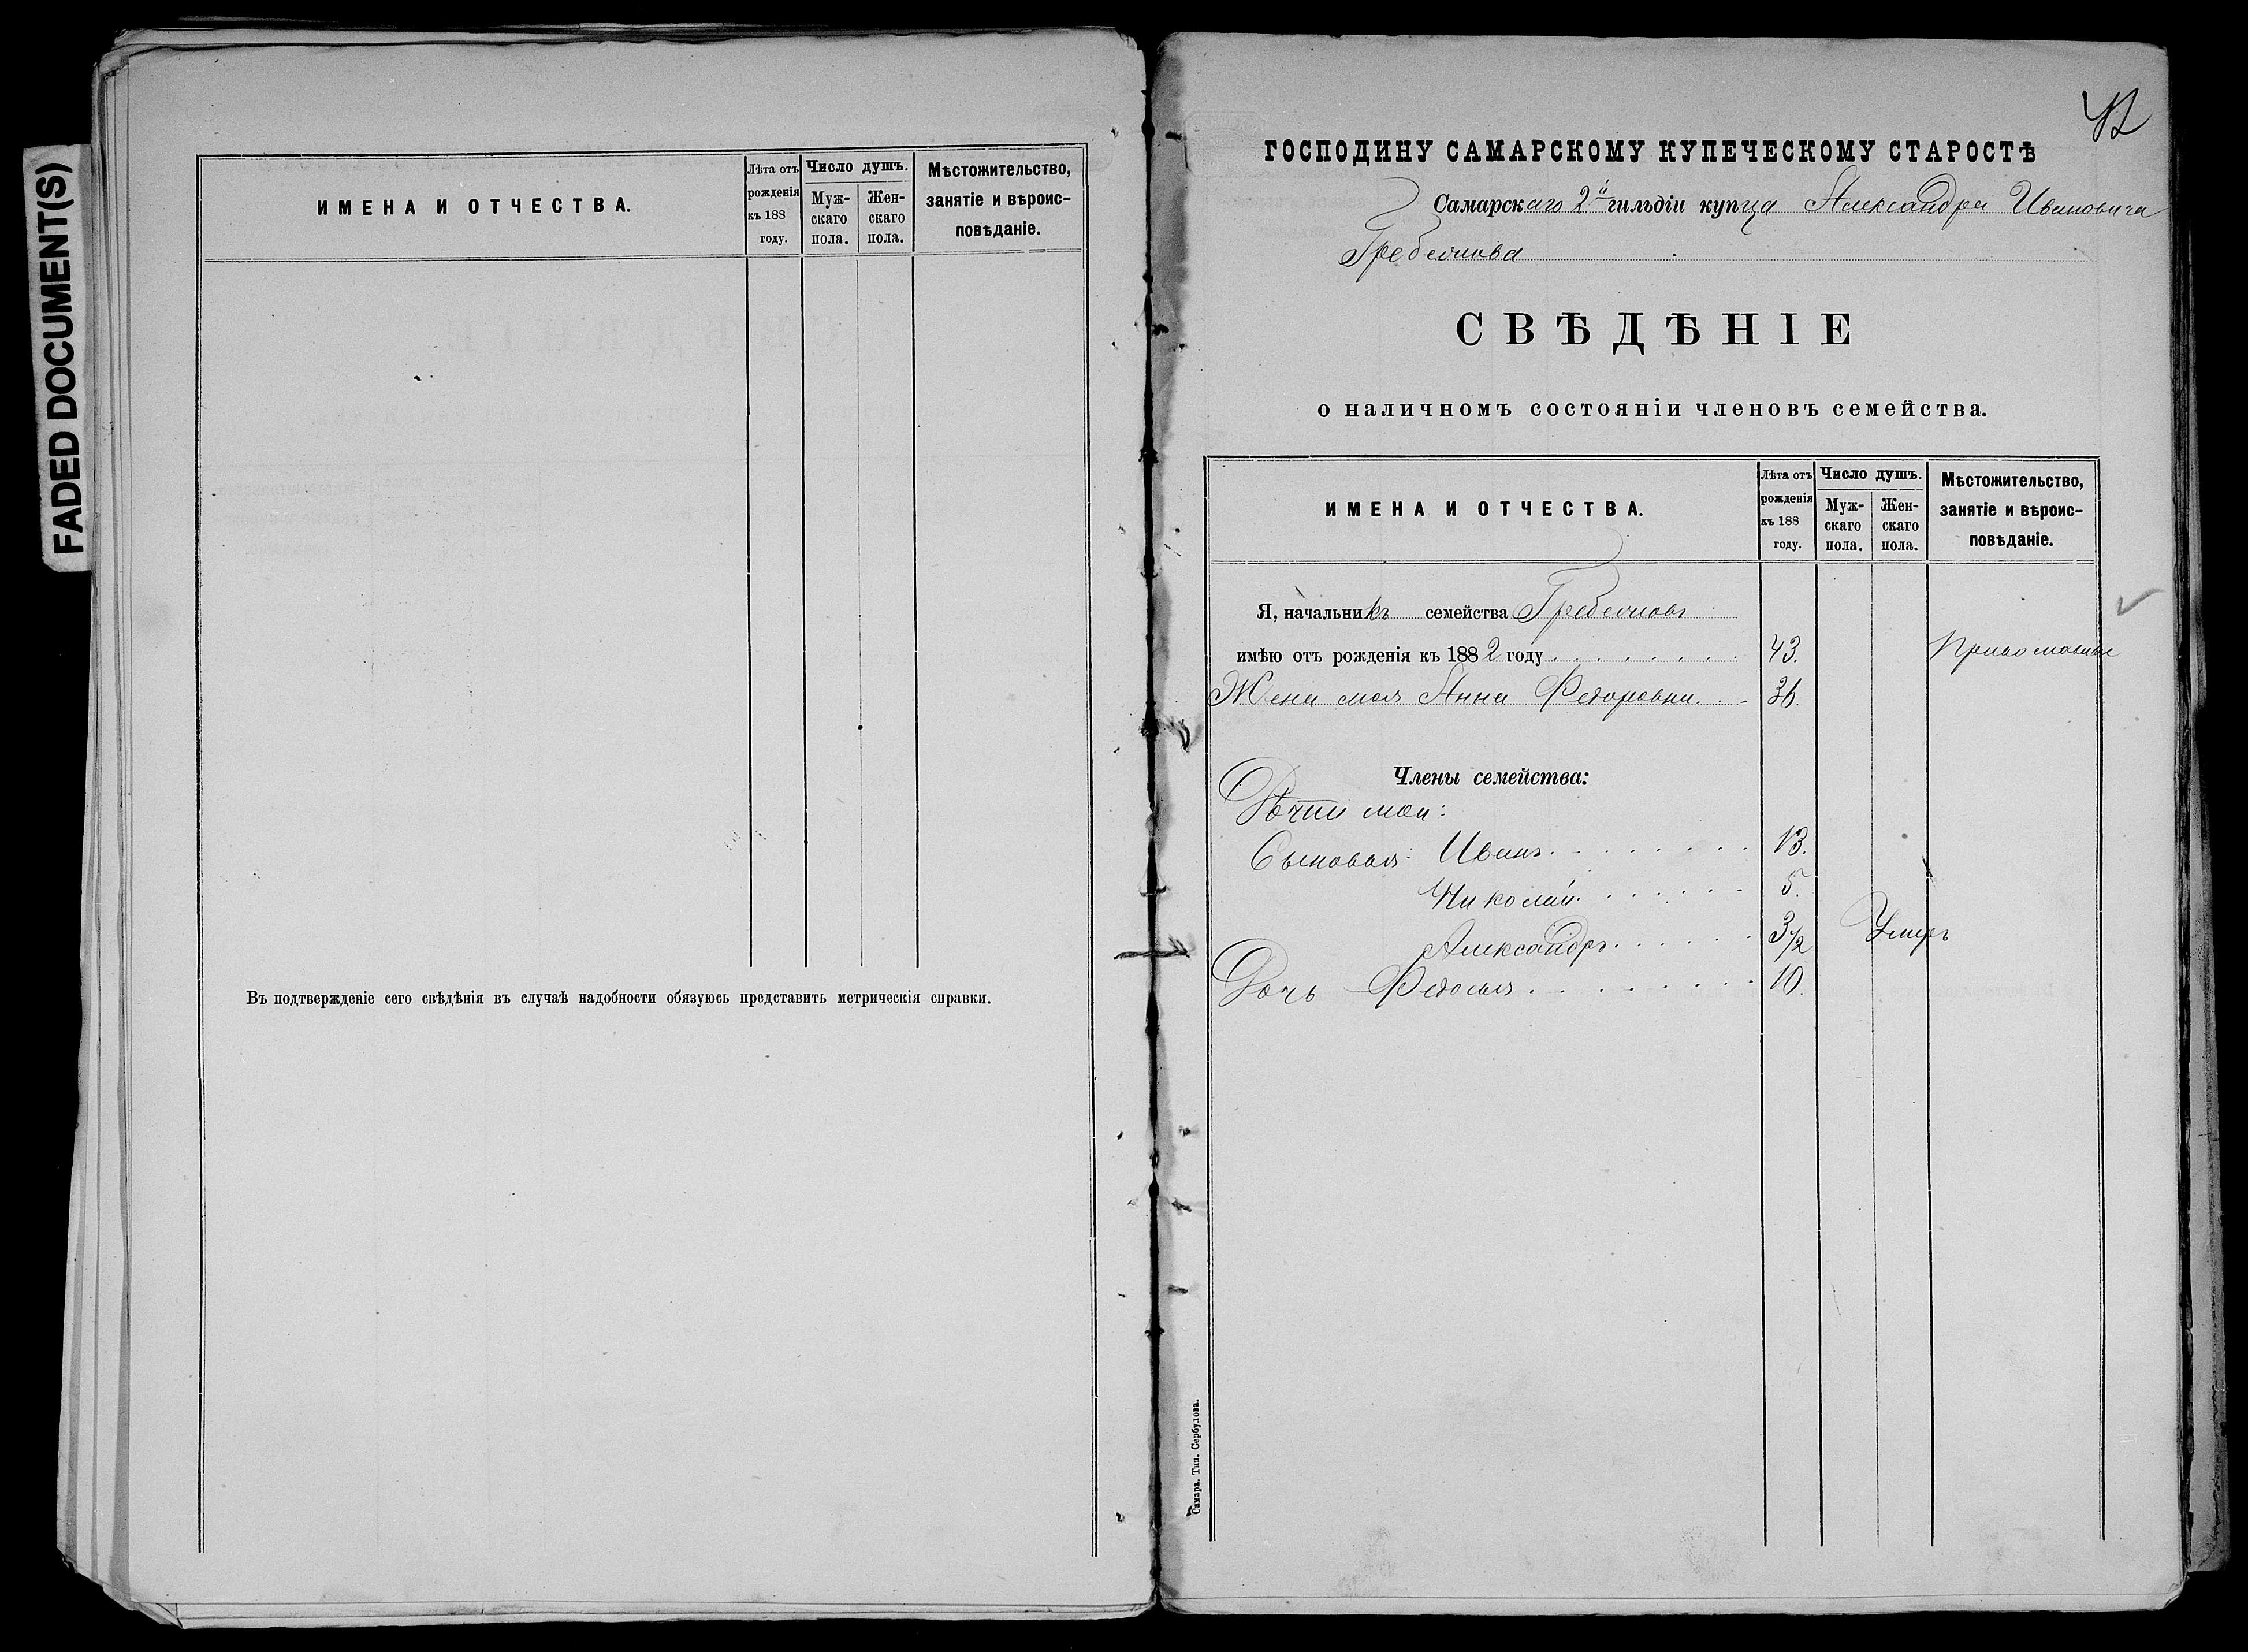 FADED DOCUMENT(S)
ИМЕНА И ОТЧЕСТВА.
Лѣта отъ рожденія къ 188 году.
Число душъ.
Мужскаго пола.
Женскаго пола.
Мѣстожительство, занятіе и вѣроисповѣданіе.
Въ подтвержденіе сего свѣдѣнія въ случаѣ надобности обязуюсь представить метрическія справки.
42
ГОСПОДИНУ САМАРСКОМУ КУПЕЧЕСКОМУ СТАРОСТѢ
Самарскаго 2й гильдіи купца Александра Ивановича
Гребенчова
СВѢДѢНІЕ
о наличномъ состояніи членовъ семейства.
ИМЕНА И ОТЧЕСТВА.
Лѣта отъ рожденія къ 188 году.
Число душъ.
Мужскаго пола.
Женскаго пола.
Мѣстожительство, занятіе и вѣроисповѣданіе.
Я, начальникъ семейства Гребенчовъ
имѣю отъ рожденія къ 1882 году 43. Православное
Жена моя Анна Федоровна 36.
Члены семейства:
Дѣти мои:
Сыновья: Иванъ 13.
Николай 5.
Александръ 3 1/2 Умеръ
Дочь Федосья 10.
Самара. Тип. Сербулова.